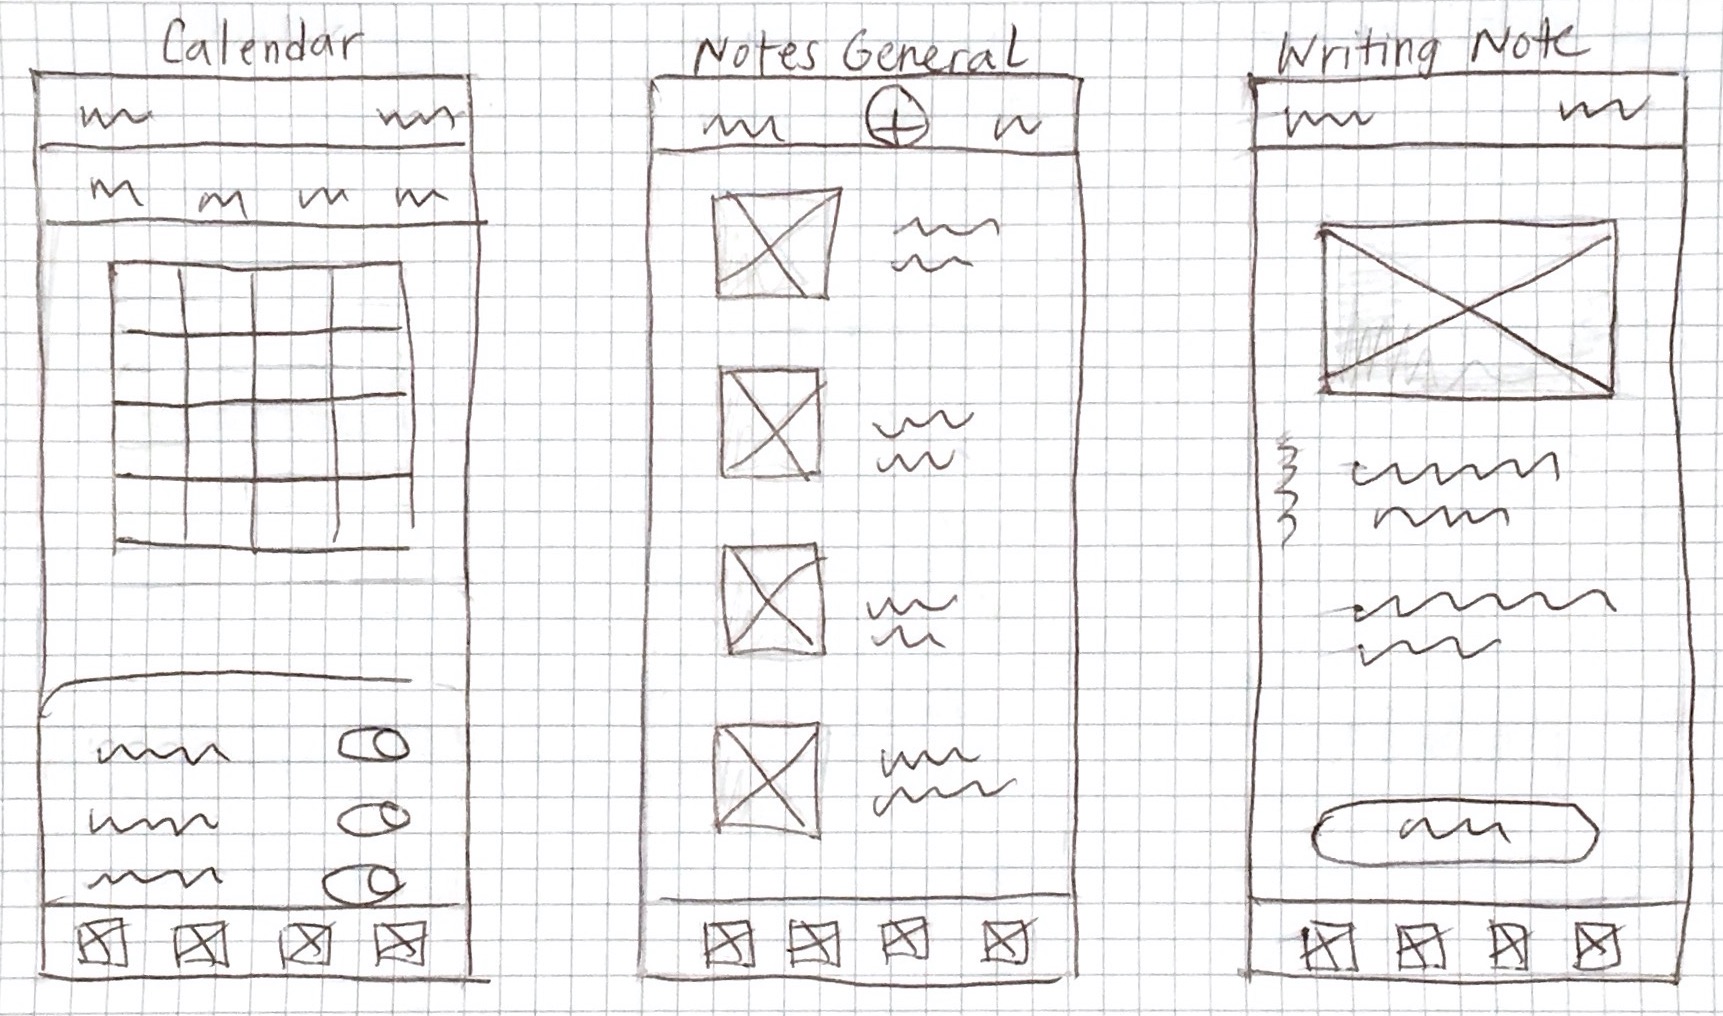 Calendar
Notes General
Writing Note